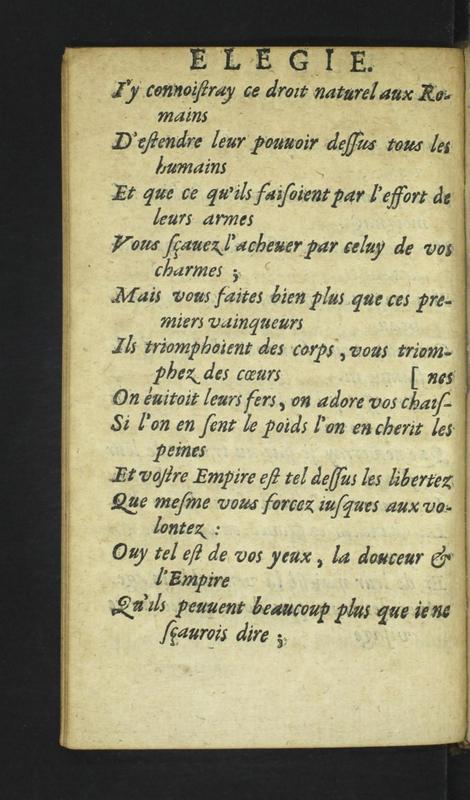 ELEGIE.
I'y connoiſtray ce droit naturel aux Ro-
mains
D'eſtendre leur pouuoir deſſus tous les
humains
Et que ce qu'ils faiſoient par l'effort de
leurs armes
Vous ſçauez l'acheuer par celuy de vos
charmes ;
Mais vous faites bien plus que ces pre-
miers vainqueurs
Ils triomphoient des corps, vous triom-
phez des cœurs [ nes
On éuitoit leurs fers, on adore vos chaiſ-
Si l'on en ſent le poids l'on encherit les
peines
Et voſtre Empire eſt tel deſſus les libertez
Que meſme vous forcez iuſques aux vo-
lontez :
Ouy tel eſt de vos yeux, la douceur &
l'Empire
Qu'ils peuuent beaucoup plus que ie ne
ſçaurois dire ;